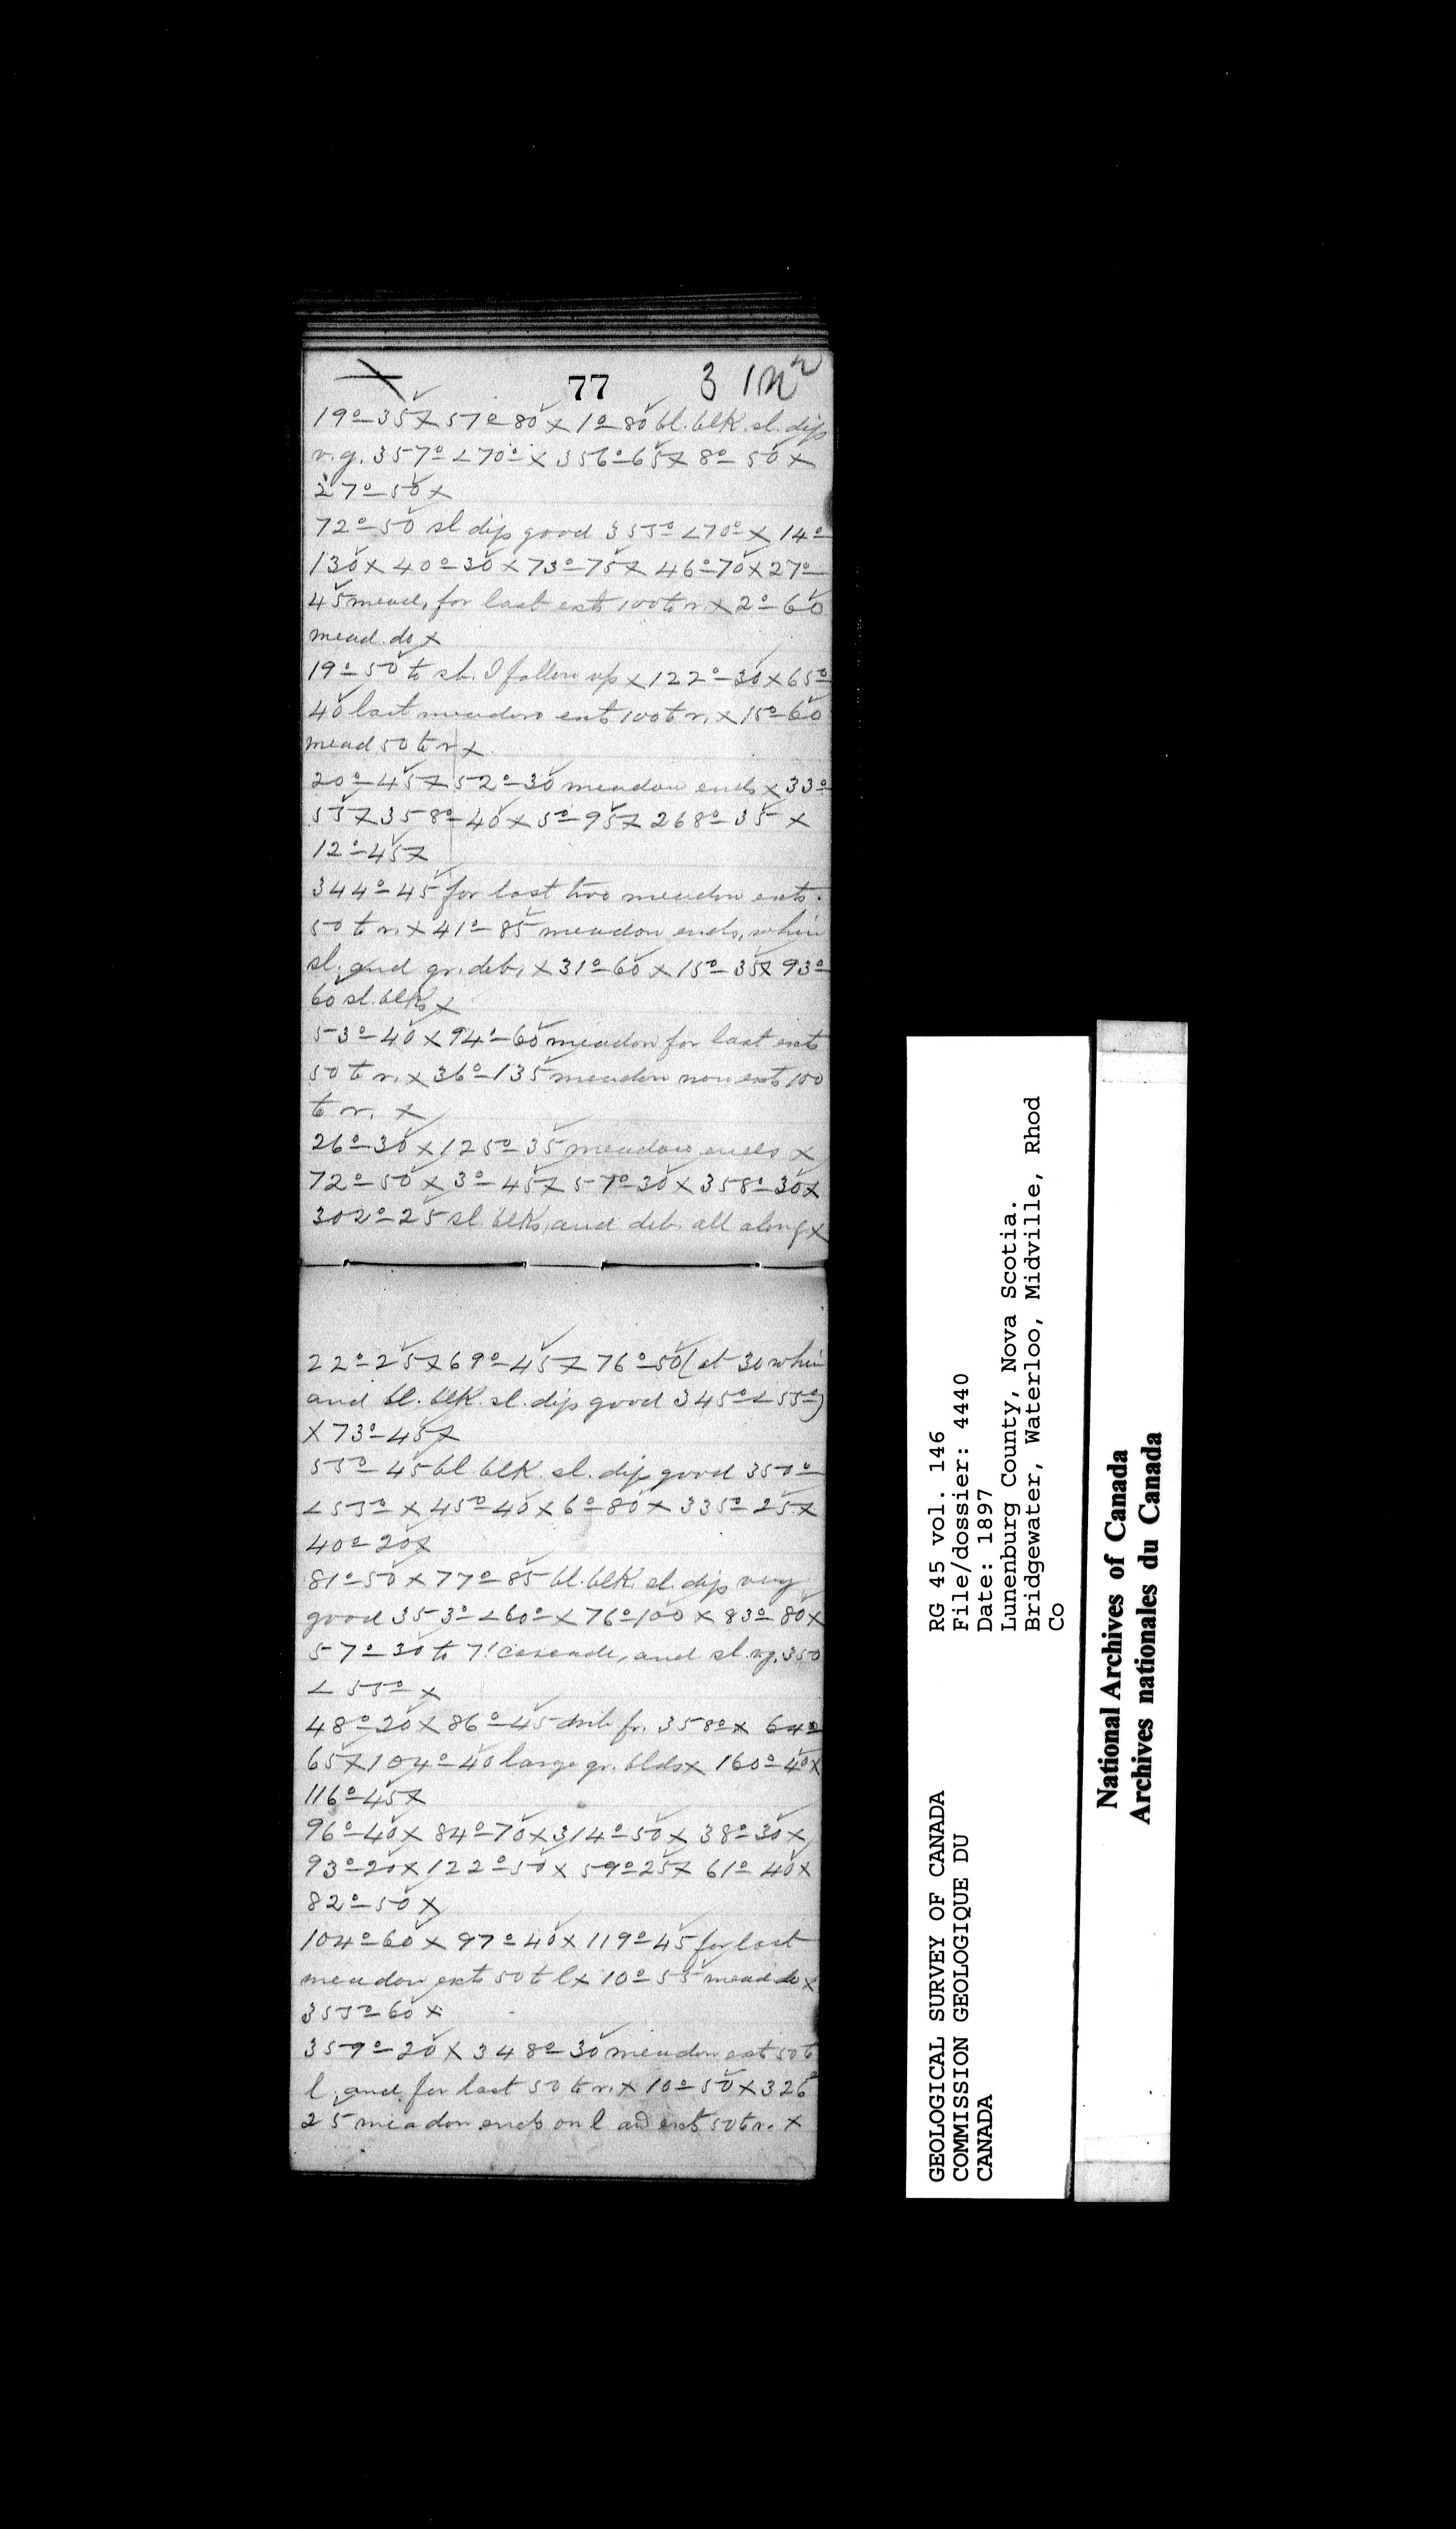 77 3 1m²
19°-35 x 57°-80 x 1°-80 bl. blk. sl. dip
v.g. 357° <70° x 356°-65 x 8°-50 x
27°-50 x
72°-50 sl dip good 355° <70° x 14°
130 x 40°-30 x 73°-75 x 46°-70 x 27°-
45 mead, for last ext 100 to r. x 2°-60
mead. do x
19°-50 to sb. I follow up x 122°-30 x 65°
40 last meadow ext 100 to r. x 15°-60
mead 50 to r x
20°-45 x 52°-30 meadow ends x 33°
55 x 358°-40 x 5°-95 x 268°-35 x
12°-45 x
344°-45 for last two meadow exts.
50 to r. x 41°-85 meadow ends, whin
sl. and gr. deb. x 31°-60 x 15°-35 x 93°-
60 sl. blks x
53°-40 x 94°-60 meadow for last ext
50 to r. x 36°-135 meadow now ext 100
to r. x
26°-30 x 125°-35 meadow ends x
72°-50 x 3°-45 x 57°-30 x 358°-30 x
302°-25 sl. blks, and deb. all along x
22°-25 x 69°-45 x 76°-50 (at 30 whin
and bl. blk. sl. dip good 345° <55°)
x 73°-45 x
55°-45 bl blk. sl. dip good 350°
<55° x 45°-40 x 6°-80 x 335°-25 x
40°-20 x
81°-50 x 77°-85 bl. blk. sl. dip very
good 353° <60° x 76°-100 x 83°-80 x
57°-30 to 7' cascade, and sl. v.g. 350
<55° x
48°-20 x 86°-45 fr. 358° x 64°
65 x 104°-40 large gr. blds x 160°-40 x
116°-45 x
96°-40 x 84°-70 x 314°-50 x 38°-30 x
93°-20 x 122°-50 x 59°-25 x 61°-40 x
82°-50 x
104°-60 x 97°-40 x 119°-45 for last
meadow ext 50 to l x 10°-55 mead do x
355°-60 x
359°-20 x 348°-30 meadow ext 50 to
l. and for last 50 to r. x 10°-50 x 326°
25 meadow ends on l and ext 50 to r. x
RG 45 vol. 146
File/dossier: 4440
Date: 1897
Lunenburg County, Nova Scotia.
Bridgewater, Waterloo, Midville, Rhod
Co
GEOLOGICAL SURVEY OF CANADA
COMMISSION GEOLOGIQUE DU
CANADA
National Archives of Canada
Archives nationales du Canada